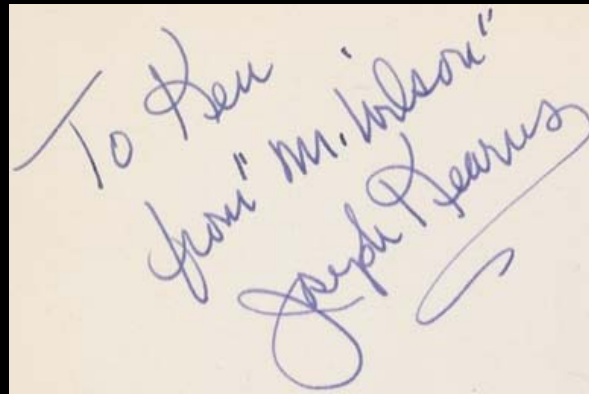 To Ken
from "Mr. Wilson"
Joseph Kearns